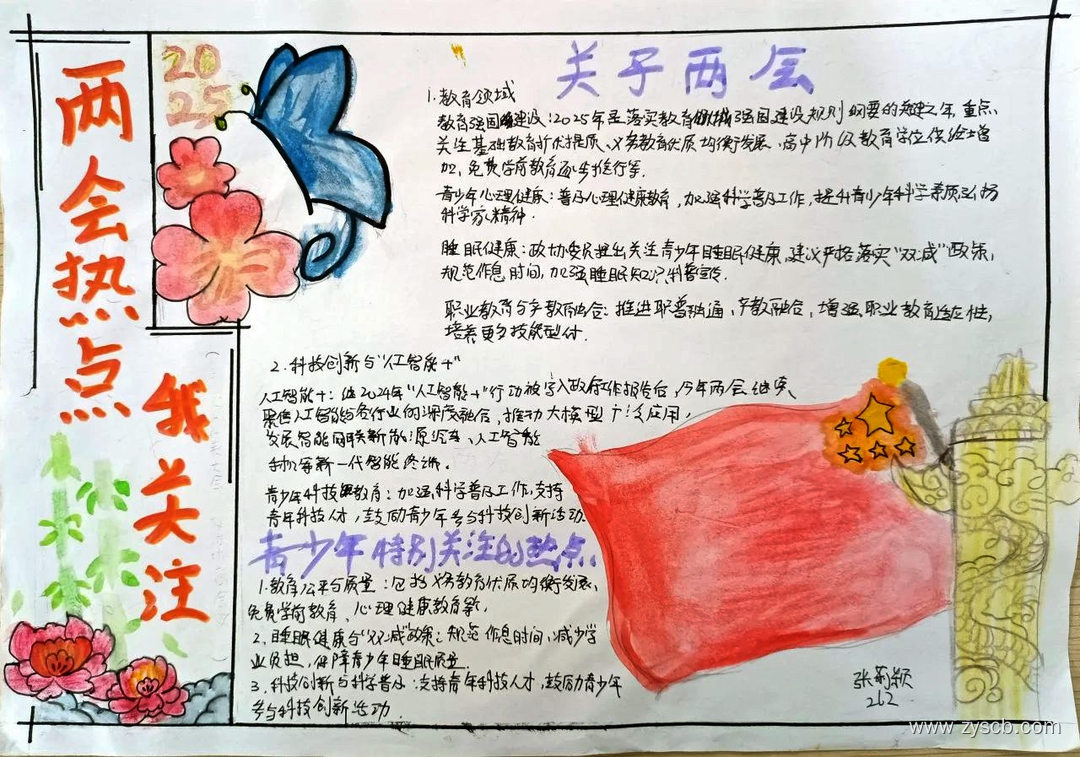 两会热点
我关注
2025
关于两会
1.教育领域
教育强国建设:2025年是落实教育强国建设规划纲要的关键之年,重点
关注基础教育扩优提质、义务教育优质均衡发展、高中阶段教育学位供给增
加,免费学前教育逐步推行等.
青少年心理健康:普及心理健康教育,加强科学普及工作,提升青少年科学素质弘扬
科学家精神.
睡眠健康:政协委员提出关注青少年睡眠健康,建议严格落实"双减"政策,
规范作息时间,加强睡眠知识科普宣传.
职业教育与产教融合:推进职普融通、产教融合,增强职业教育适应性,
培养更多技能型人才.
2.科技创新与"人工智能+"
人工智能+:继2024年"人工智能+"行动被写入政府工作报告后,今年两会继续
聚焦人工智能与各行业的深度融合,推动大模型广泛应用,
发展智能网联新能源汽车、人工智能
手机等新一代智能终端.
青少年科技教育:加强科学普及工作,支持
青年科技人才,鼓励青少年参与科技创新活动.
青少年特别关注的热点
1.教育公平与质量:包括义务教育优质均衡发展、
免费学前教育、心理健康教育等.
2.睡眠健康与"双减"政策:规范作息时间,减少学
业负担,保障青少年睡眠质量.
3.科技创新与科学普及:支持青年科技人才,鼓励青少年
参与科技创新活动.
262
www.zyscb.com